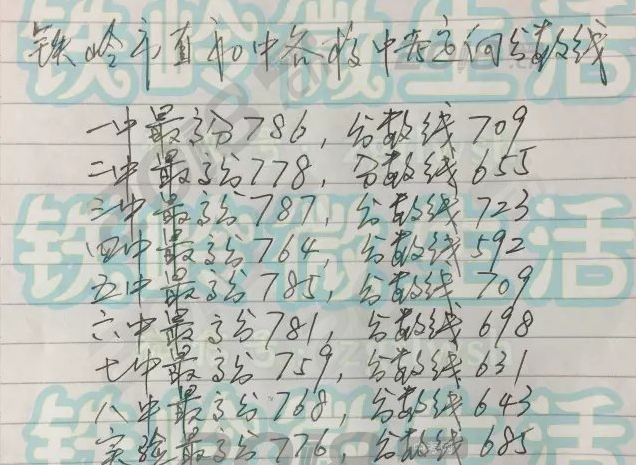 铁岭市直初中各校中考定向分数线
一中最高分786,分数线709
二中最高分778,分数线655
三中最高分787,分数线723
四中最高分764,分数线592
五中最高分785,分数线709
六中最高分781,分数线698
七中最高分759,分数线631
八中最高分768,分数线643
实验最高分776,分数线685
铁岭微生活
铁岭微生活
铁岭微生活